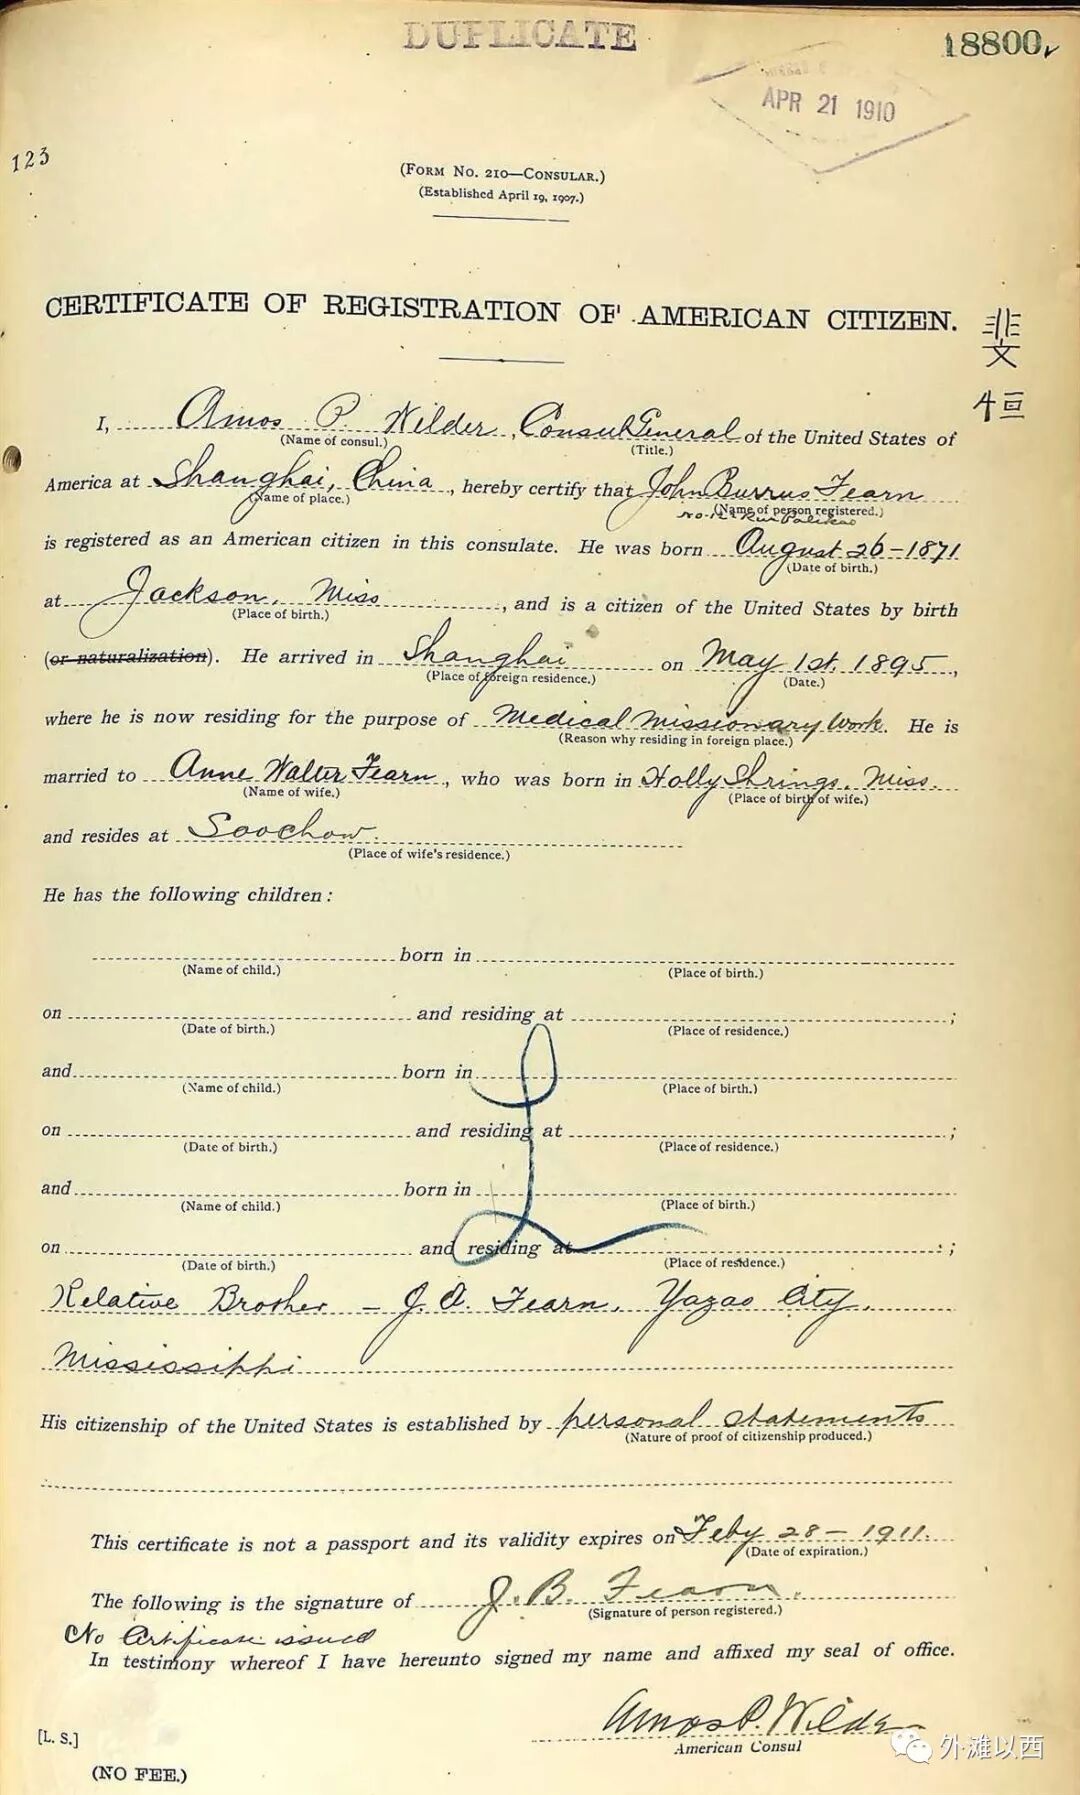 DUPLICATE
18800
APR 21 1910
123
(FORM NO. 210—CONSULAR.)
(Established April 19, 1907.)
CERTIFICATE OF REGISTRATION OF AMERICAN CITIZEN.
斐
文
桓
I, Amos P. Wilder, Consul General of the United States of
(Name of consul.) (Title.)
America at Shanghai, China, hereby certify that John Burrus Fearn
(Name of place.) (Name of person registered.)
is registered as an American citizen in this consulate. He was born August 26-1871
(Date of birth.)
at Jackson, Miss, and is a citizen of the United States by birth
(Place of birth.)
(or naturalization). He arrived in Shanghai on May 1st. 1895,
(Place of foreign residence.) (Date.)
where he is now residing for the purpose of Medical Missionary Work. He is
(Reason why residing in foreign place.)
married to Anne Walter Fearn, who was born in Holly Shrings, Miss.
(Name of wife.) (Place of birth of wife.)
and resides at Soochow.
(Place of wife's residence.)
He has the following children:
born in
(Name of child.) (Place of birth.)
on and residing at ;
(Date of birth.) (Place of residence.)
and born in
(Name of child.) (Place of birth.)
on and residing at ;
(Date of birth.) (Place of residence.)
and born in
(Name of child.) (Place of birth.)
on and residing at ;
(Date of birth.) (Place of residence.)
Relative Brother - J. A. Fearn, Yazao City,
Mississippi
His citizenship of the United States is established by personal statements
(Nature of proof of citizenship produced.)
This certificate is not a passport and its validity expires on Feby 28-1911.
(Date of expiration.)
The following is the signature of J. B. Fearn.
(Signature of person registered.)
No Certificate issued
In testimony whereof I have hereunto signed my name and affixed my seal of office.
Amos P. Wilder
American Consul
[L. S.]
(NO FEE.)
外滩以西